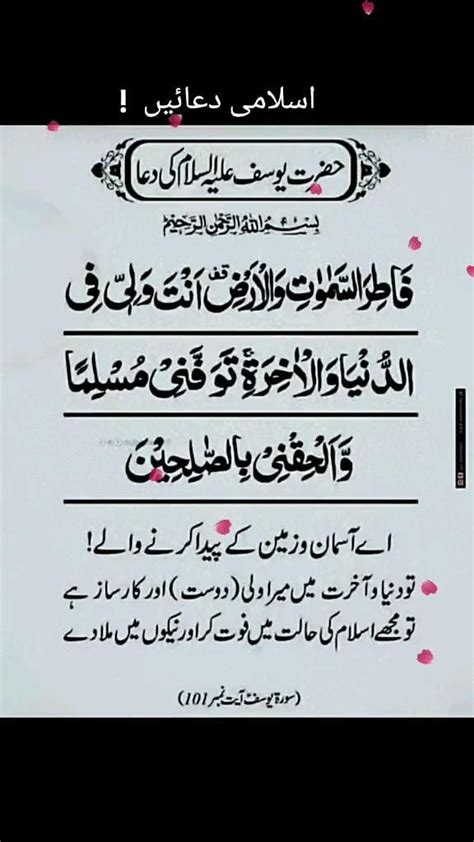 اسلامی دعائیں !
حضرت یوسف علیہ السلام کی دعا
بِسْمِ اللهِ الرَّحْمٰنِ الرَّحِيْمِ
فَاطِرَ السَّمٰوٰتِ وَالْاَرْضِ قف اَنْتَ وَلِیّٖ فِی
الدُّنْیَا وَالْاٰخِرَةِ ۚ تَوَفَّنِیْ مُسْلِمًا
وَّاَلْحِقْنِیْ بِالصّٰلِحِیْنَ
اے آسمان و زمین کے پیدا کرنے والے!
تو دنیا و آخرت میں میرا ولی (دوست) اور کارساز ہے
تو مجھے اسلام کی حالت میں فوت کر اور نیکوں میں ملا دے
(سورۃ یوسف آیت نمبر 101)